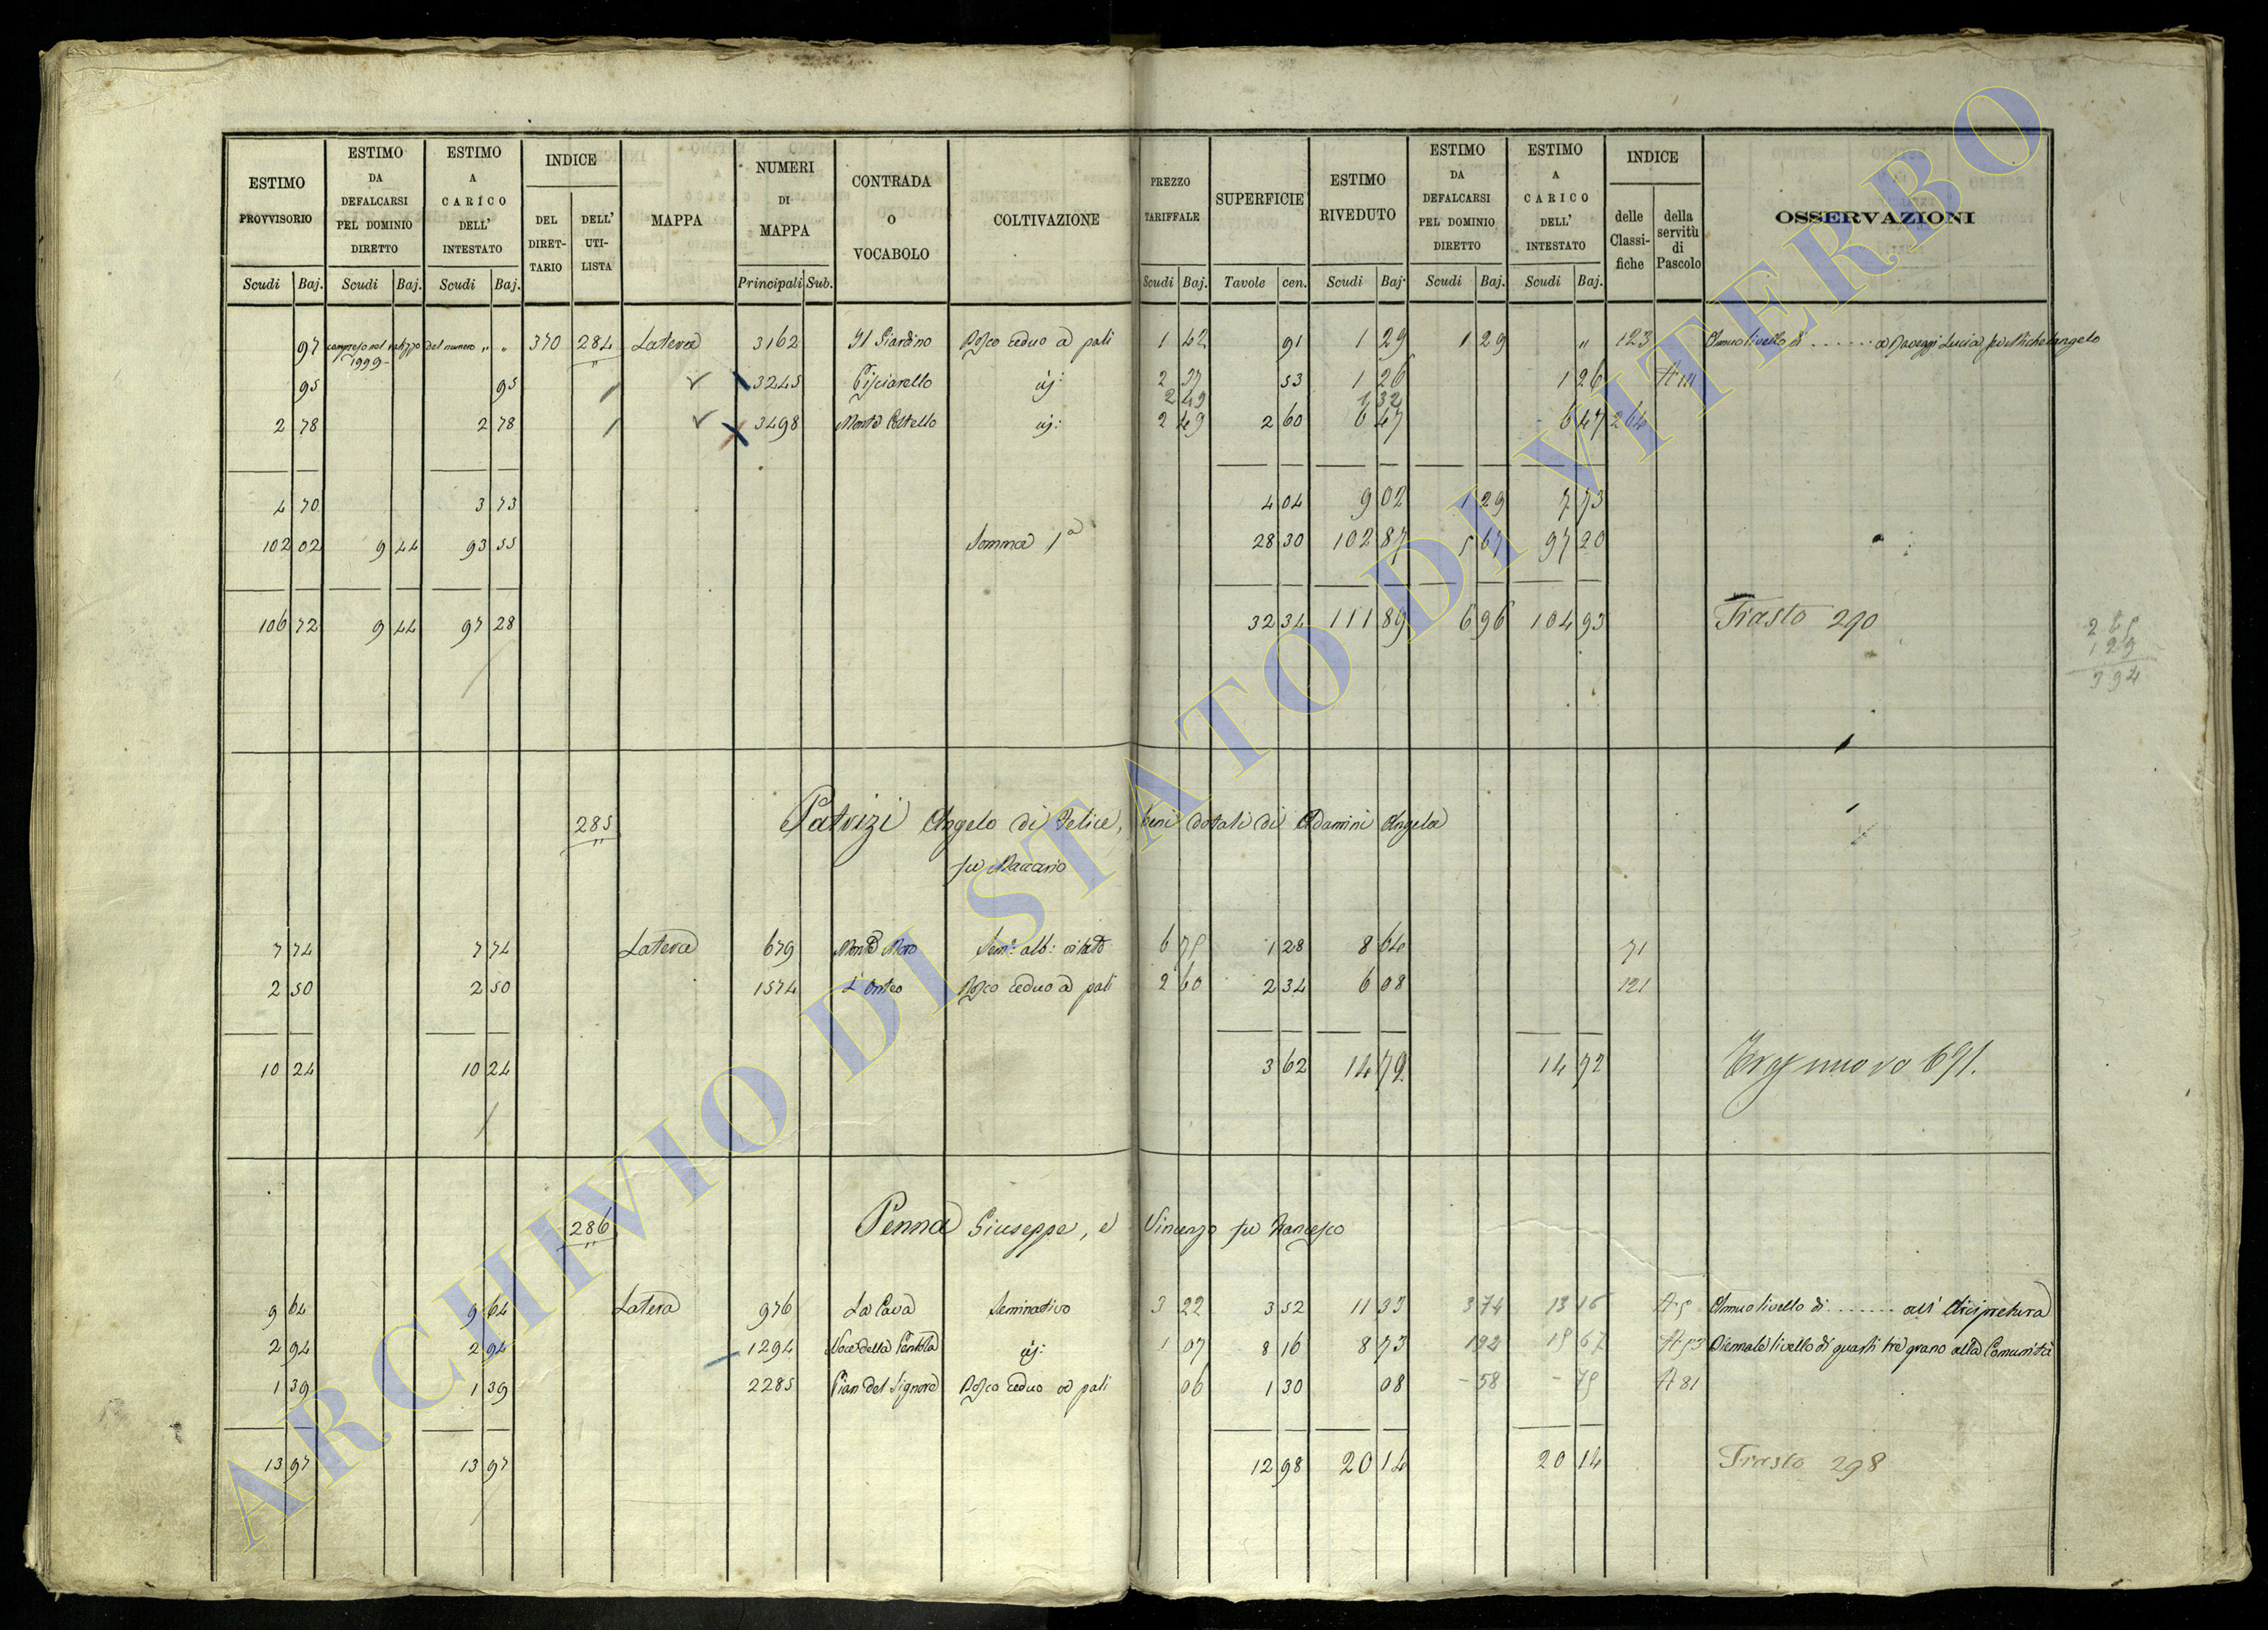 ESTIMO PROVVISORIO | ESTIMO DA DEFALCARSI PEL DOMINIO DIRETTO | ESTIMO A CARICO DELL' INTESTATO | INDICE | MAPPA | NUMERI DI MAPPA | CONTRADA O VOCABOLO | COLTIVAZIONE | PREZZO TARIFFALE | SUPERFICIE | ESTIMO RIVEDUTO | ESTIMO DA DEFALCARSI PEL DOMINIO DIRETTO | ESTIMO A CARICO DELL' INTESTATO | INDICE | OSSERVAZIONI
DEL DIRETTARIO | DELL' UTILISTA | delle Classifiche | della servitù di Pascolo
Scudi | Baj. | Scudi | Baj. | Scudi | Baj. | Principali | Sub. | Scudi | Baj. | Tavole | cen. | Scudi | Baj. | Scudi | Baj. | Scudi | Baj.
97 compreso nel del numero " " 370 284 Latera 3162 Il Giardino Bosco ceduo a pali 1 42 91 1 29 1 29 " 123 Annuo livello di ...... a Lucia fu Michelangelo
1999
95 95 3245 Pisciarello id: 2 37 53 1 26 1 26 A 111
2 49 1 32
2 78 2 78 3498 Monte Castello id: 2 49 2 60 6 47 6 47 264
4 70 3 73 4 04 9 02 1 29 7 73
102 02 9 44 93 55 Somma 1a 28 30 102 87 5 67 97 20
106 72 9 44 97 28 32 34 111 89 6 96 104 93 Trasto 290
394
285 Patrizi Angelo di Felice, beni dotali di Adamini Angela
fu Maccario
7 74 7 74 Latera 679 Monte Moro Sem: alb: vitato 6 75 1 28 8 64 71
2 50 2 50 1574 Bosco ceduo a pali 2 60 2 34 6 08 121
10 24 10 24 3 62 14 72 14 72 nuovo 691.
286 Penna Giuseppe, e Vincenzo fu Francesco
9 64 9 64 Latera 976 La Cava Seminativo 3 22 3 52 11 33 3 74 13 16 A 5 Annuo livello di ...... all' Arcipretura
2 94 2 94 1294 Noce della Pentola id: 1 07 8 16 8 73 192 15 67 A 53 Biennale livello di quarti tre grano alla Comunità
1 39 1 39 2285 Pian del Signore Bosco ceduo a pali 06 1 30 08 - 58 - 75 A 81
13 97 13 97 12 98 20 14 20 14 Trasto 298
ARCHIVIO DI STATO DI VITERBO